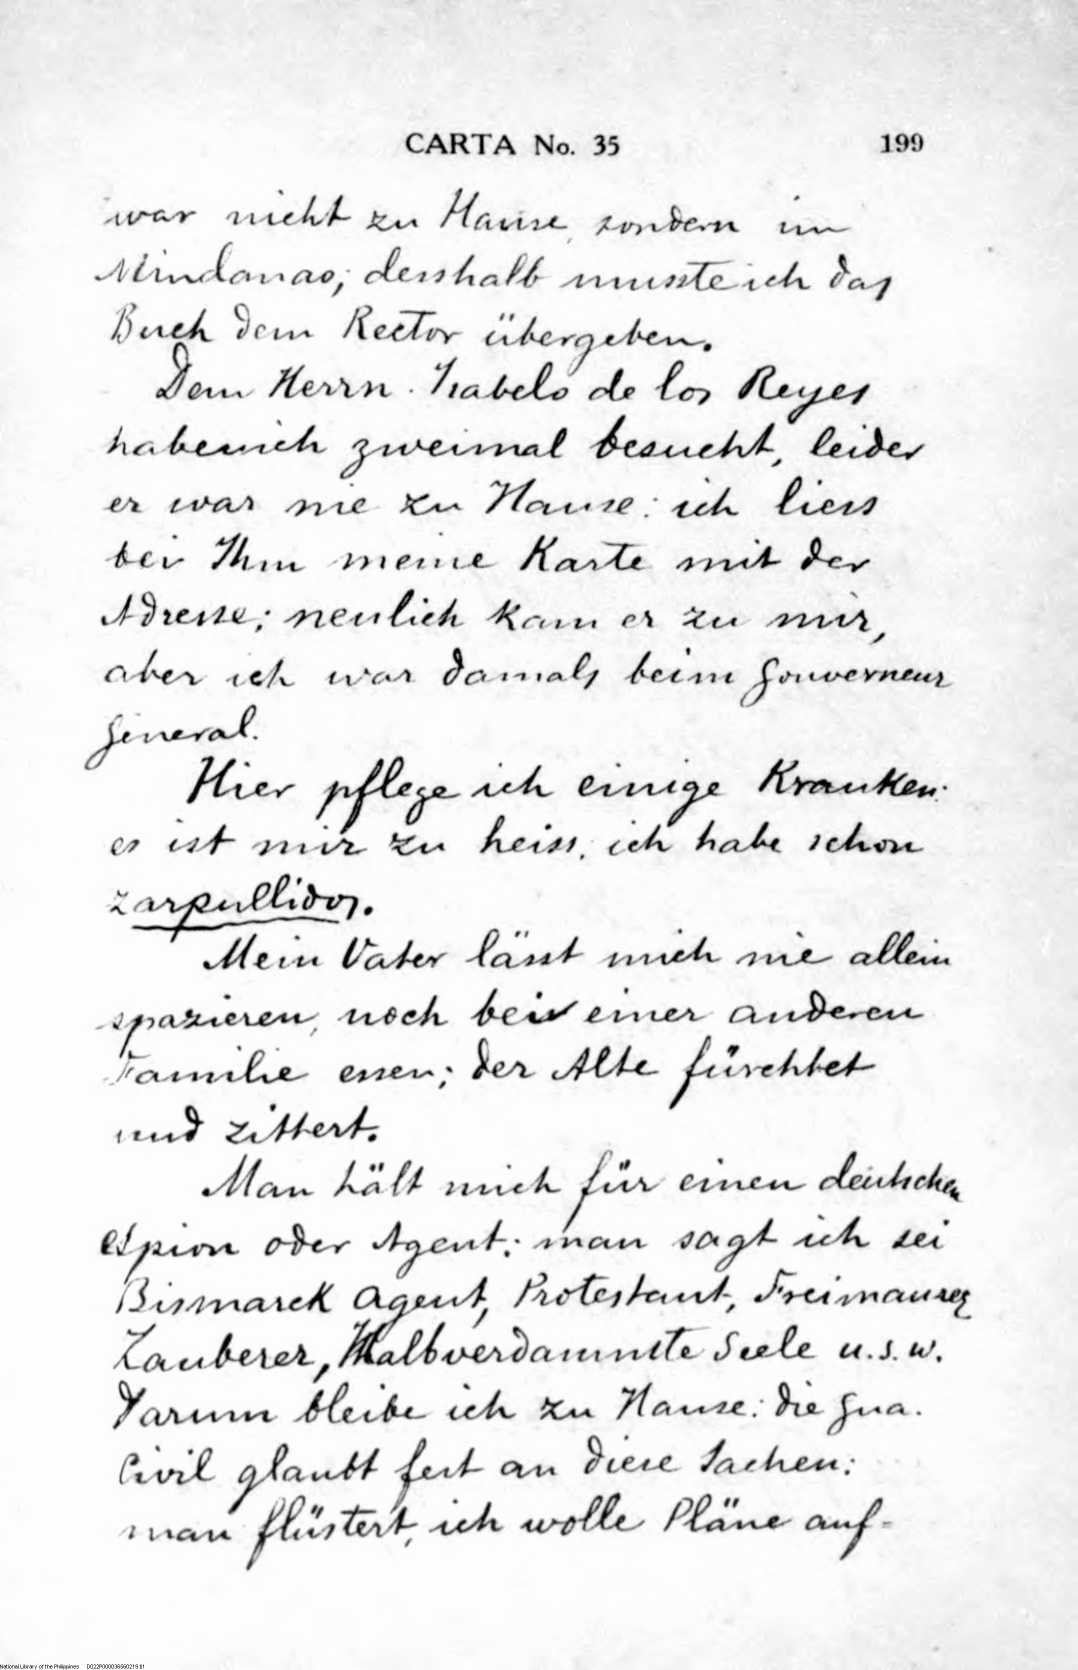 CARTA No. 35 199
war nicht zu Hause, sondern im
Mindanao; desshalb musste ich das
Buch dem Rector übergeben.
Dem Herrn Isabelo de los Reyes
habe ich zweimal besucht, leider
er war nie zu Hause: ich liess
bei Ihm meine Karte mit der
Adresse; neulich kam er zu mir,
aber ich war damals beim Gouverneur
General.
Hier pflege ich einige Kranken:
es ist mir zu heiss, ich habe schon
zarpullidos.
Mein Vater lässt mich nie allein
spazieren, noch bei einer anderen
Familie essen; der Alte fürchtet
und zittert.
Man hält mich für einen deutschen
Spion oder Agent; man sagt ich sei
Bismarck Agent, Protestant, Freimaurer
Zauberer, Halbverdammte Seele u.s.w.
Darum bleibe ich zu Hause: die Gua.
Civil glaubt fest an diese Sachen:
man flüstert, ich wolle Pläne auf-
National Library of the Philippines